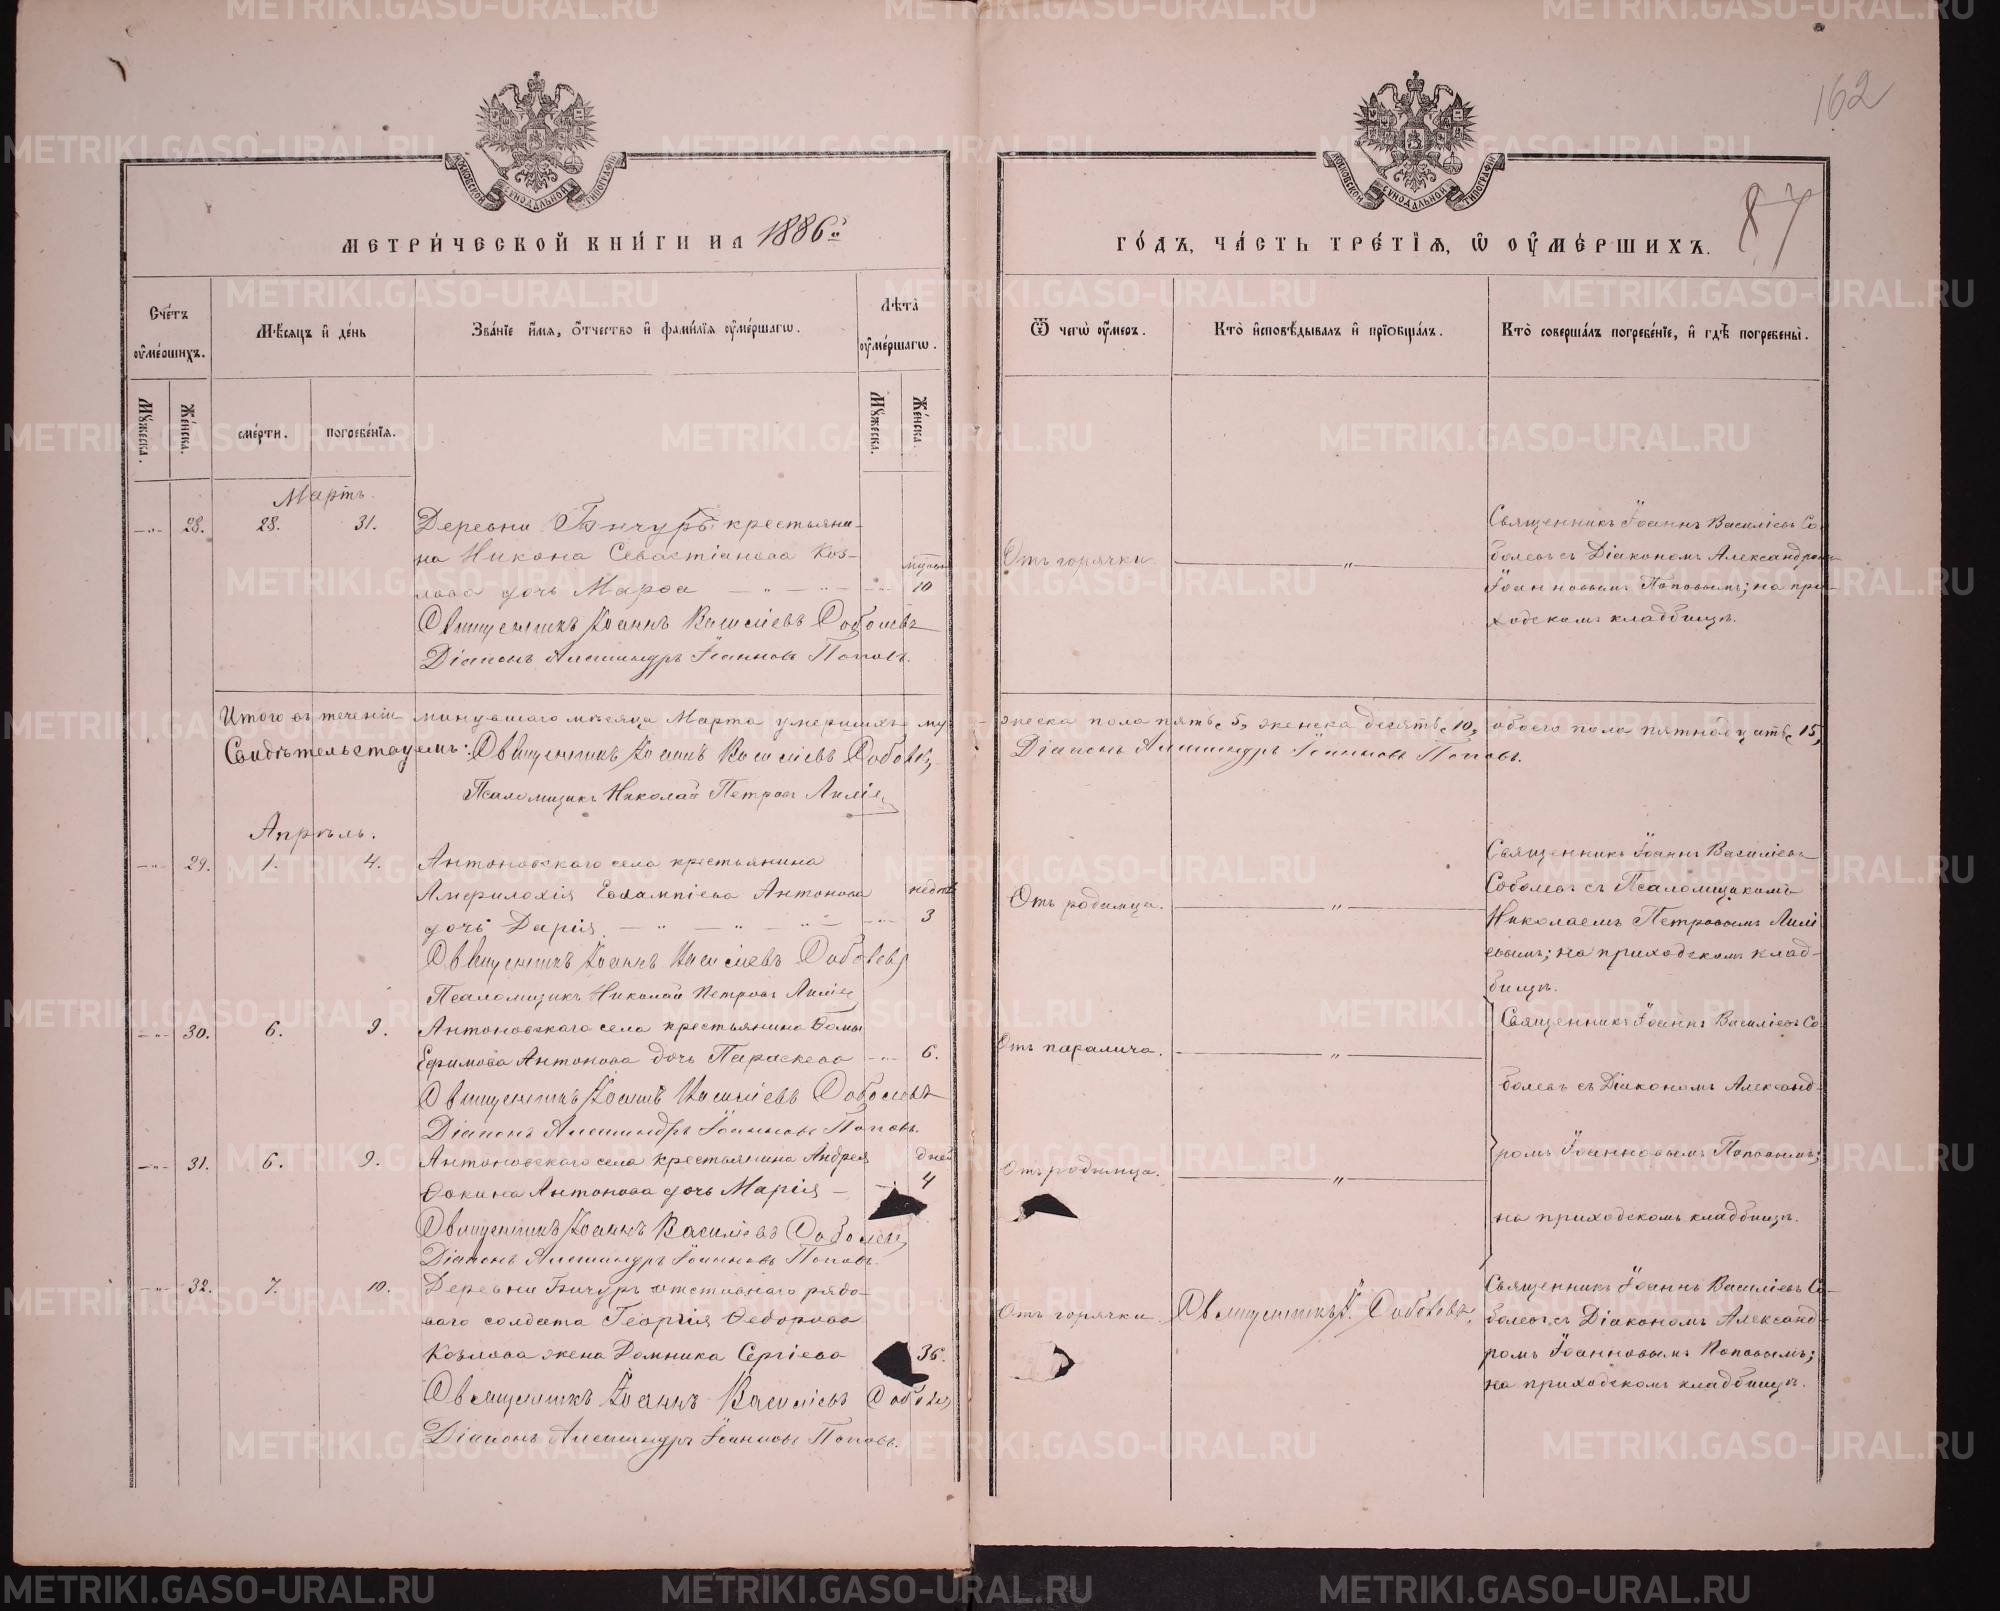 162
87
МОСКОВСКОЙ СѴНОДАЛЬНОЙ ТИПОГРАФІИ
МОСКОВСКОЙ СѴНОДАЛЬНОЙ ТИПОГРАФІИ
МЕТРИ́ЧЕСКОЙ КНИ́ГИ НА 1886й
ГО́ДЪ, ЧА́СТЬ ТРЕ́ТІѦ, Ѡ ОУ҆МЕ́РШИХЪ.
Сче́тъ оу҆ме́ршихъ.
Мѣ́сѧцъ и҆ де́нь
Зва́ніе и҆́мѧ, ѻ҆́тчество и҆ фами́лїѧ оу҆ме́ршагѡ.
Лѣ́та оу҆ме́ршагѡ.
Ѿ чегѡ̀ оу҆́меръ.
Кто̀ и҆сповѣ́дывалъ и҆ прїѡбща́лъ.
Кто̀ соверша́лъ погребе́нїе, и҆ гдѣ̀ погребены̀.
Мꙋ́жеска.
Же́нска.
сме́рти.
погребе́нїѧ.
Мꙋ́жеска.
Же́нска.
Мартъ.
28. 28. 31. Деревни Бичуръ крестьяни-
на Никона Севастіанова Коз-
лова дочь Марѳа 10
Священникъ Іоаннъ Василіевъ Соболевъ
Діаконъ Александръ Іоанновъ Поповъ.
Отъ горячки
Священникъ Іоаннъ Василіевъ Со-
болевъ съ Діакономъ Александромъ
Іоанновымъ Поповымъ; на при-
ходскомъ кладбищѣ.
Итого въ теченіи минувшаго мѣсяца Марта умершихъ му-
жеска пола пять 5, женска десять 10, обоего пола пятнадцать 15,
Свидѣтельствуемъ: Священникъ Іоаннъ Василіевъ Соболевъ,
Діаконъ Александръ Іоанновъ Поповъ.
Псаломщикъ Николай Петровъ
Апрѣль.
29. 1. 4. Антоновскаго села крестьянина
Амфилохія Евлампіева Антонова недѣль
дочь Дарія 3
Священникъ Іоаннъ Василіевъ Соболевъ
Псаломщикъ Николай Петровъ
Отъ родимца.
Священникъ Іоаннъ Василіевъ
Соболевъ съ Псаломщикомъ
Николаемъ Петровымъ
на приходскомъ клад-
бищѣ.
30. 6. 9. Антоновскаго села крестьянина Ѳомы
Ефимова Антонова дочь Параскева 6.
Священникъ Іоаннъ Василіевъ Соболевъ
Діаконъ Александръ Іоанновъ Поповъ.
Отъ паралича.
Священникъ Іоаннъ Василіевъ Со-
болевъ съ Діакономъ Александ-
ромъ Іоанновымъ Поповымъ;
на приходскомъ кладбищѣ.
31. 6. 9. Антоновскаго села крестьянина Андрея дней
Фокина Антонова дочь Марія 4
Священникъ Іоаннъ Василіевъ Соболевъ,
Діаконъ Александръ Іоанновъ Поповъ.
Отъ родимца.
32. 7. 10. Деревни Бичуръ отставнаго рядо-
ваго солдата Георгія Ѳедорова
Козлова жена Домника Сергіева 36.
Священникъ Іоаннъ Василіевъ Соболевъ,
Діаконъ Александръ Іоанновъ Поповъ.
Отъ горячки
Священникъ І. Соболевъ,
Священникъ Іоаннъ Василіевъ Со-
болевъ съ Діакономъ Александ-
ромъ Іоанновымъ Поповымъ;
на приходскомъ кладбищѣ.
METRIKI.GASO-URAL.RU